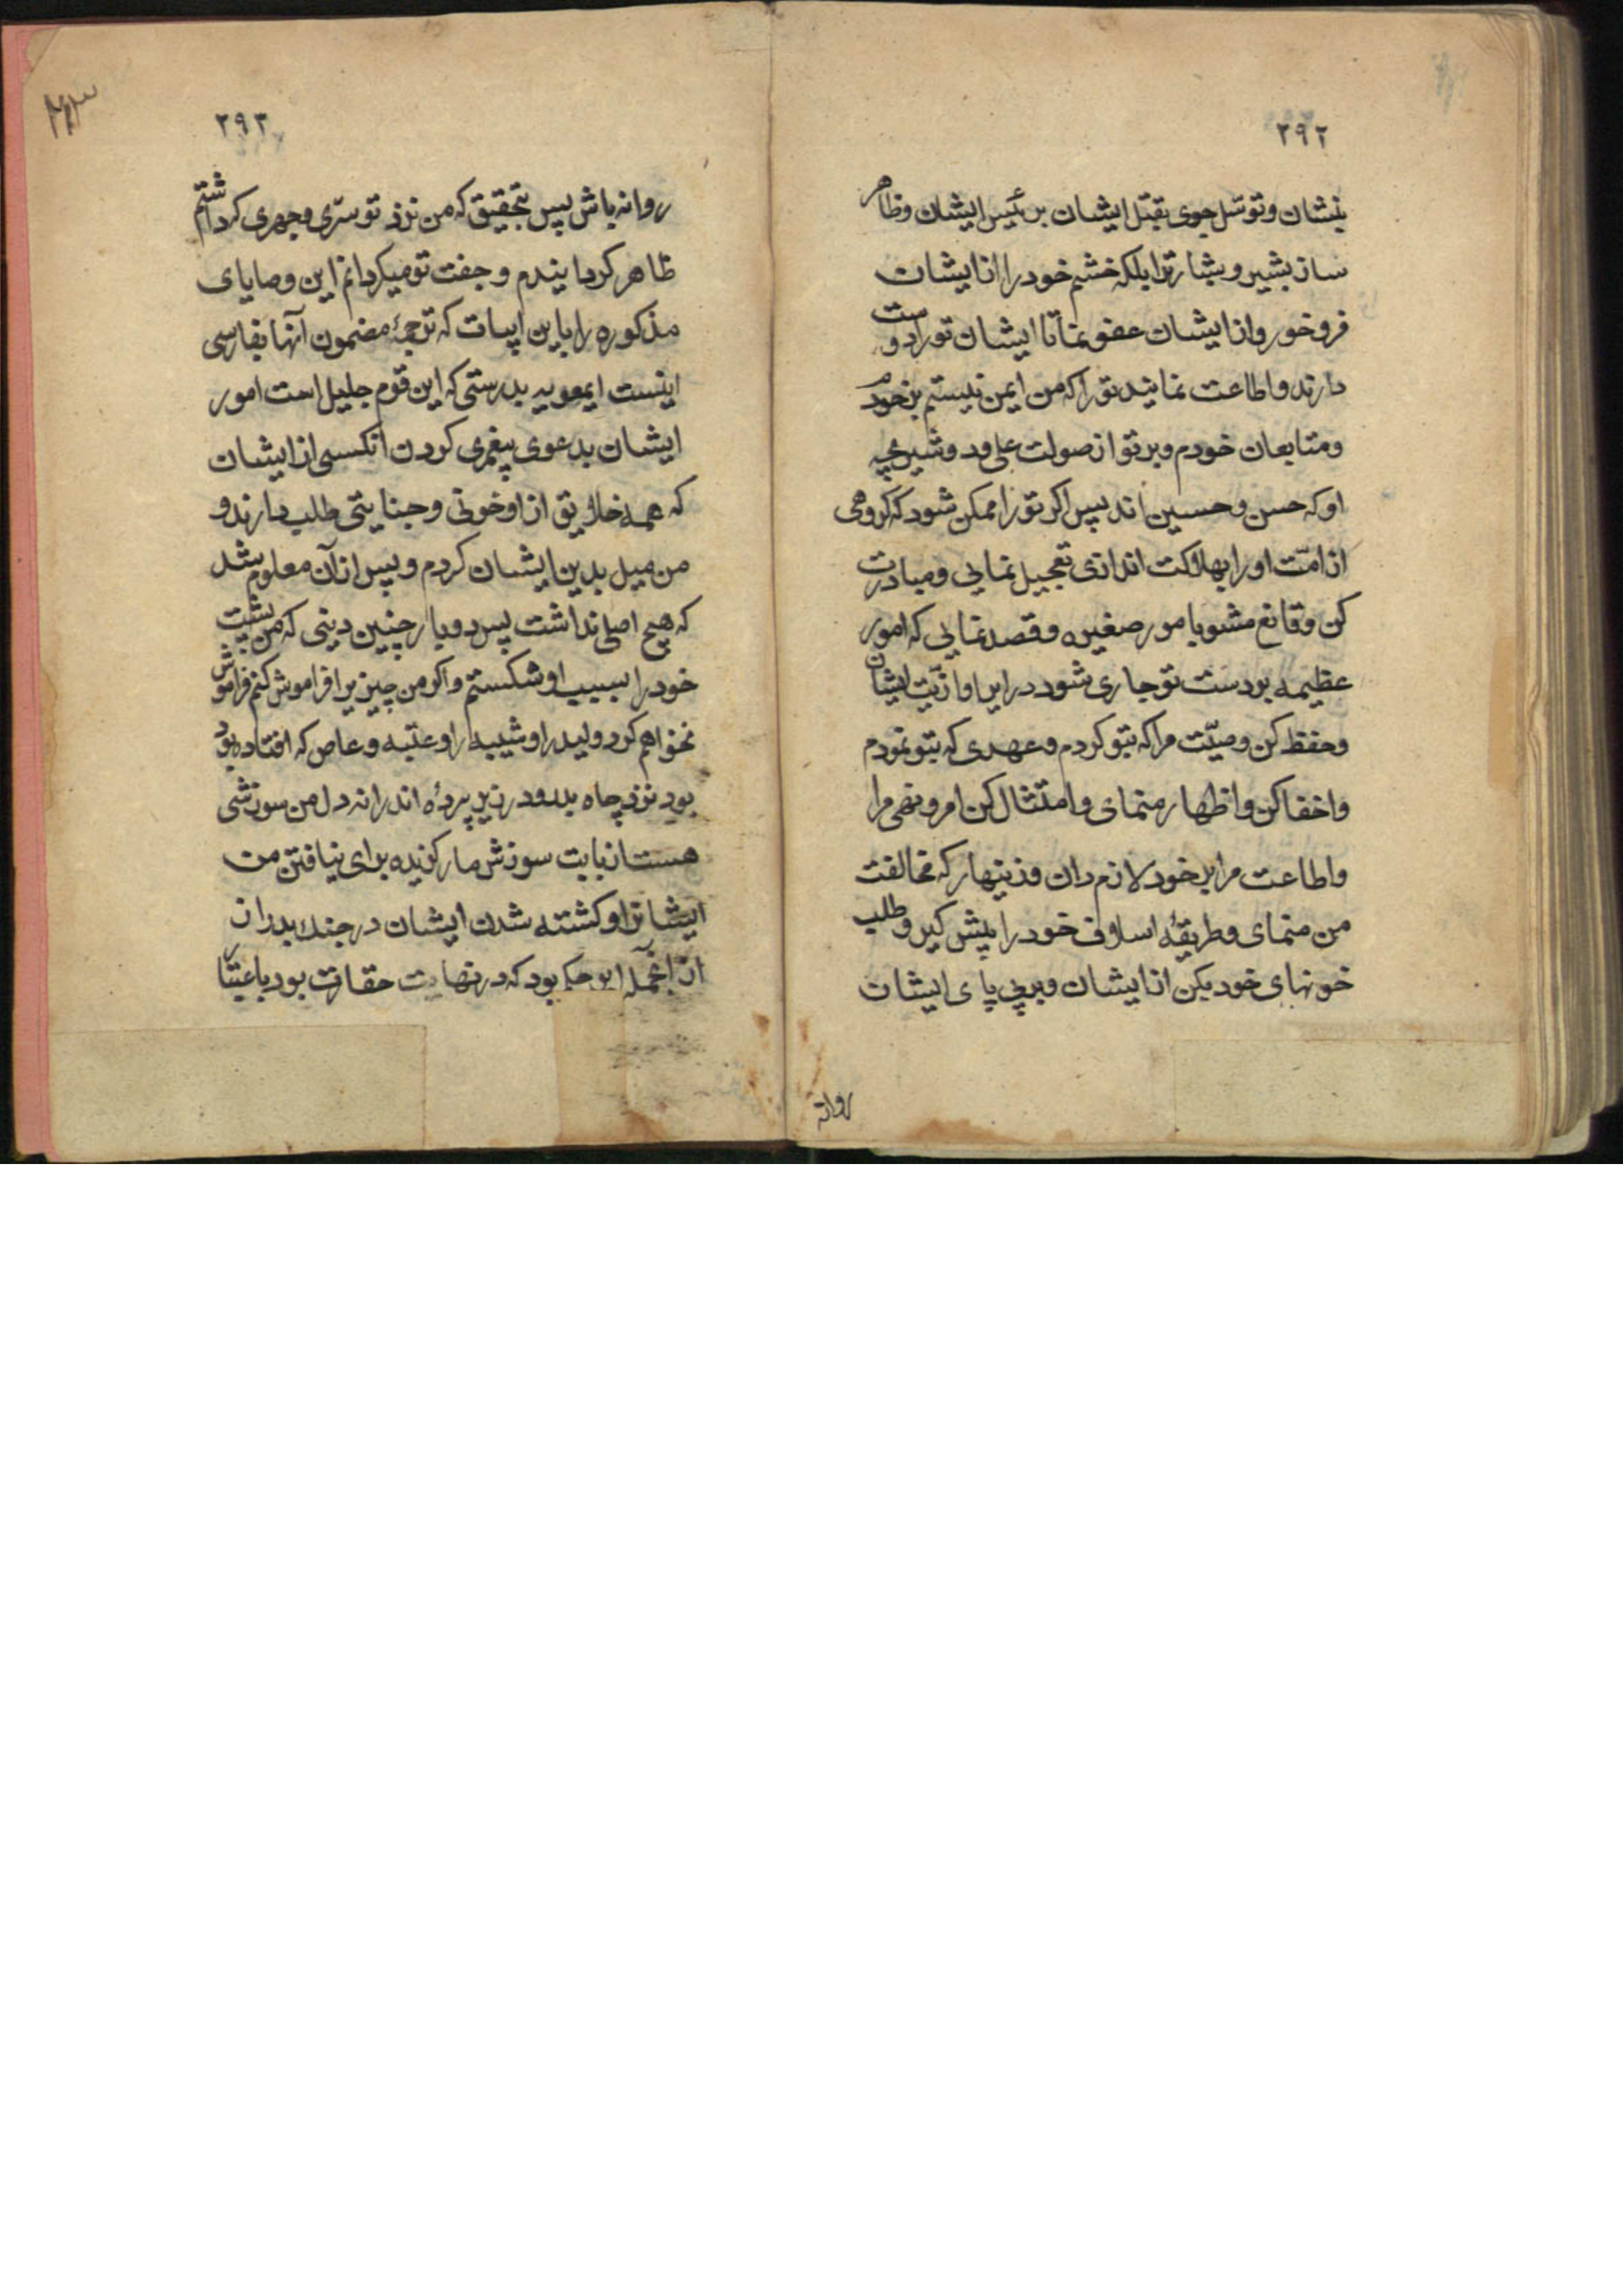 ۲۹۲
بنشان و توسل جوی بقتل ایشان بر رئیس ایشان و ظاهر
ساز بشیر و بشارترا بلکه خشم خود را از ایشان
فرو خور و از ایشان عفو نما تا ایشان تو را دوست
دارند و اطاعت نمایند تو را که من ایمن نیستم بر خود
و متابعان خودم و بر تو از صولت علی و دو شیر بچه
او که حسن و حسین اند پس اکر تو را ممکن شود که کروهی
از امّت او را بهلاکت اندازی تعجیل نمایی و مبادرت
کن و قانع مشو بامور صغیره و قصد نمایی که امور
عظیمه بودست تو جاری شود در ایرا و اذیّت ایشان
و حفظ کن وصیّت مرا که بتو کردم و عهدی که بتو نمودم
و اخفا کن و اظهار منمای و امتثال کن امر و نهی مرا
و اطاعت مرا بر خود لازم دان و زینهار که مخالفت
من منمای و طریقهٔ اسلاف خود را پیش کیر و طلب
خونهای خود بکن از ایشان و برپی پای ایشان
روانه
۲۹۳
روانه باش پس بتحقیق که من نزد تو سرّی و جهری که داشتم
ظاهر کردانیدم و جفت تو میکردانم این وصایای
مذکوره را باین ابیات که ترجمهٔ مضمون آنها بفارسی
اینست ایمعویه بدرستی که این قوم جلیل است امور
ایشان بدعوی پیغمبری کردن آنکسی از ایشان
که همه خلایق از او خونی و جنایتی طلب دارند و
من میل بدین ایشان کردم و پس از آن معلوم شد
که هیچ اصلی نداشت پس دور باد چنین دینی که من پشت
خود را بسبب او شکستم و اکر من چیزیرا فراموش کنم فراموش
نخواهم کرد ولید را و شیبه را و عتبه و عاص که افتاده بود
بود نزد چاه بدر و در زیر پردهٔ اندرانه دل من سوزشی
هست از بابت سوزش مار کزیده برای نیافتن من
ایشانرا و کشته شدن ایشان در جنك بدر از
از آنجمله ابو حکم بود که در نهایت حقارت بود باعتبا